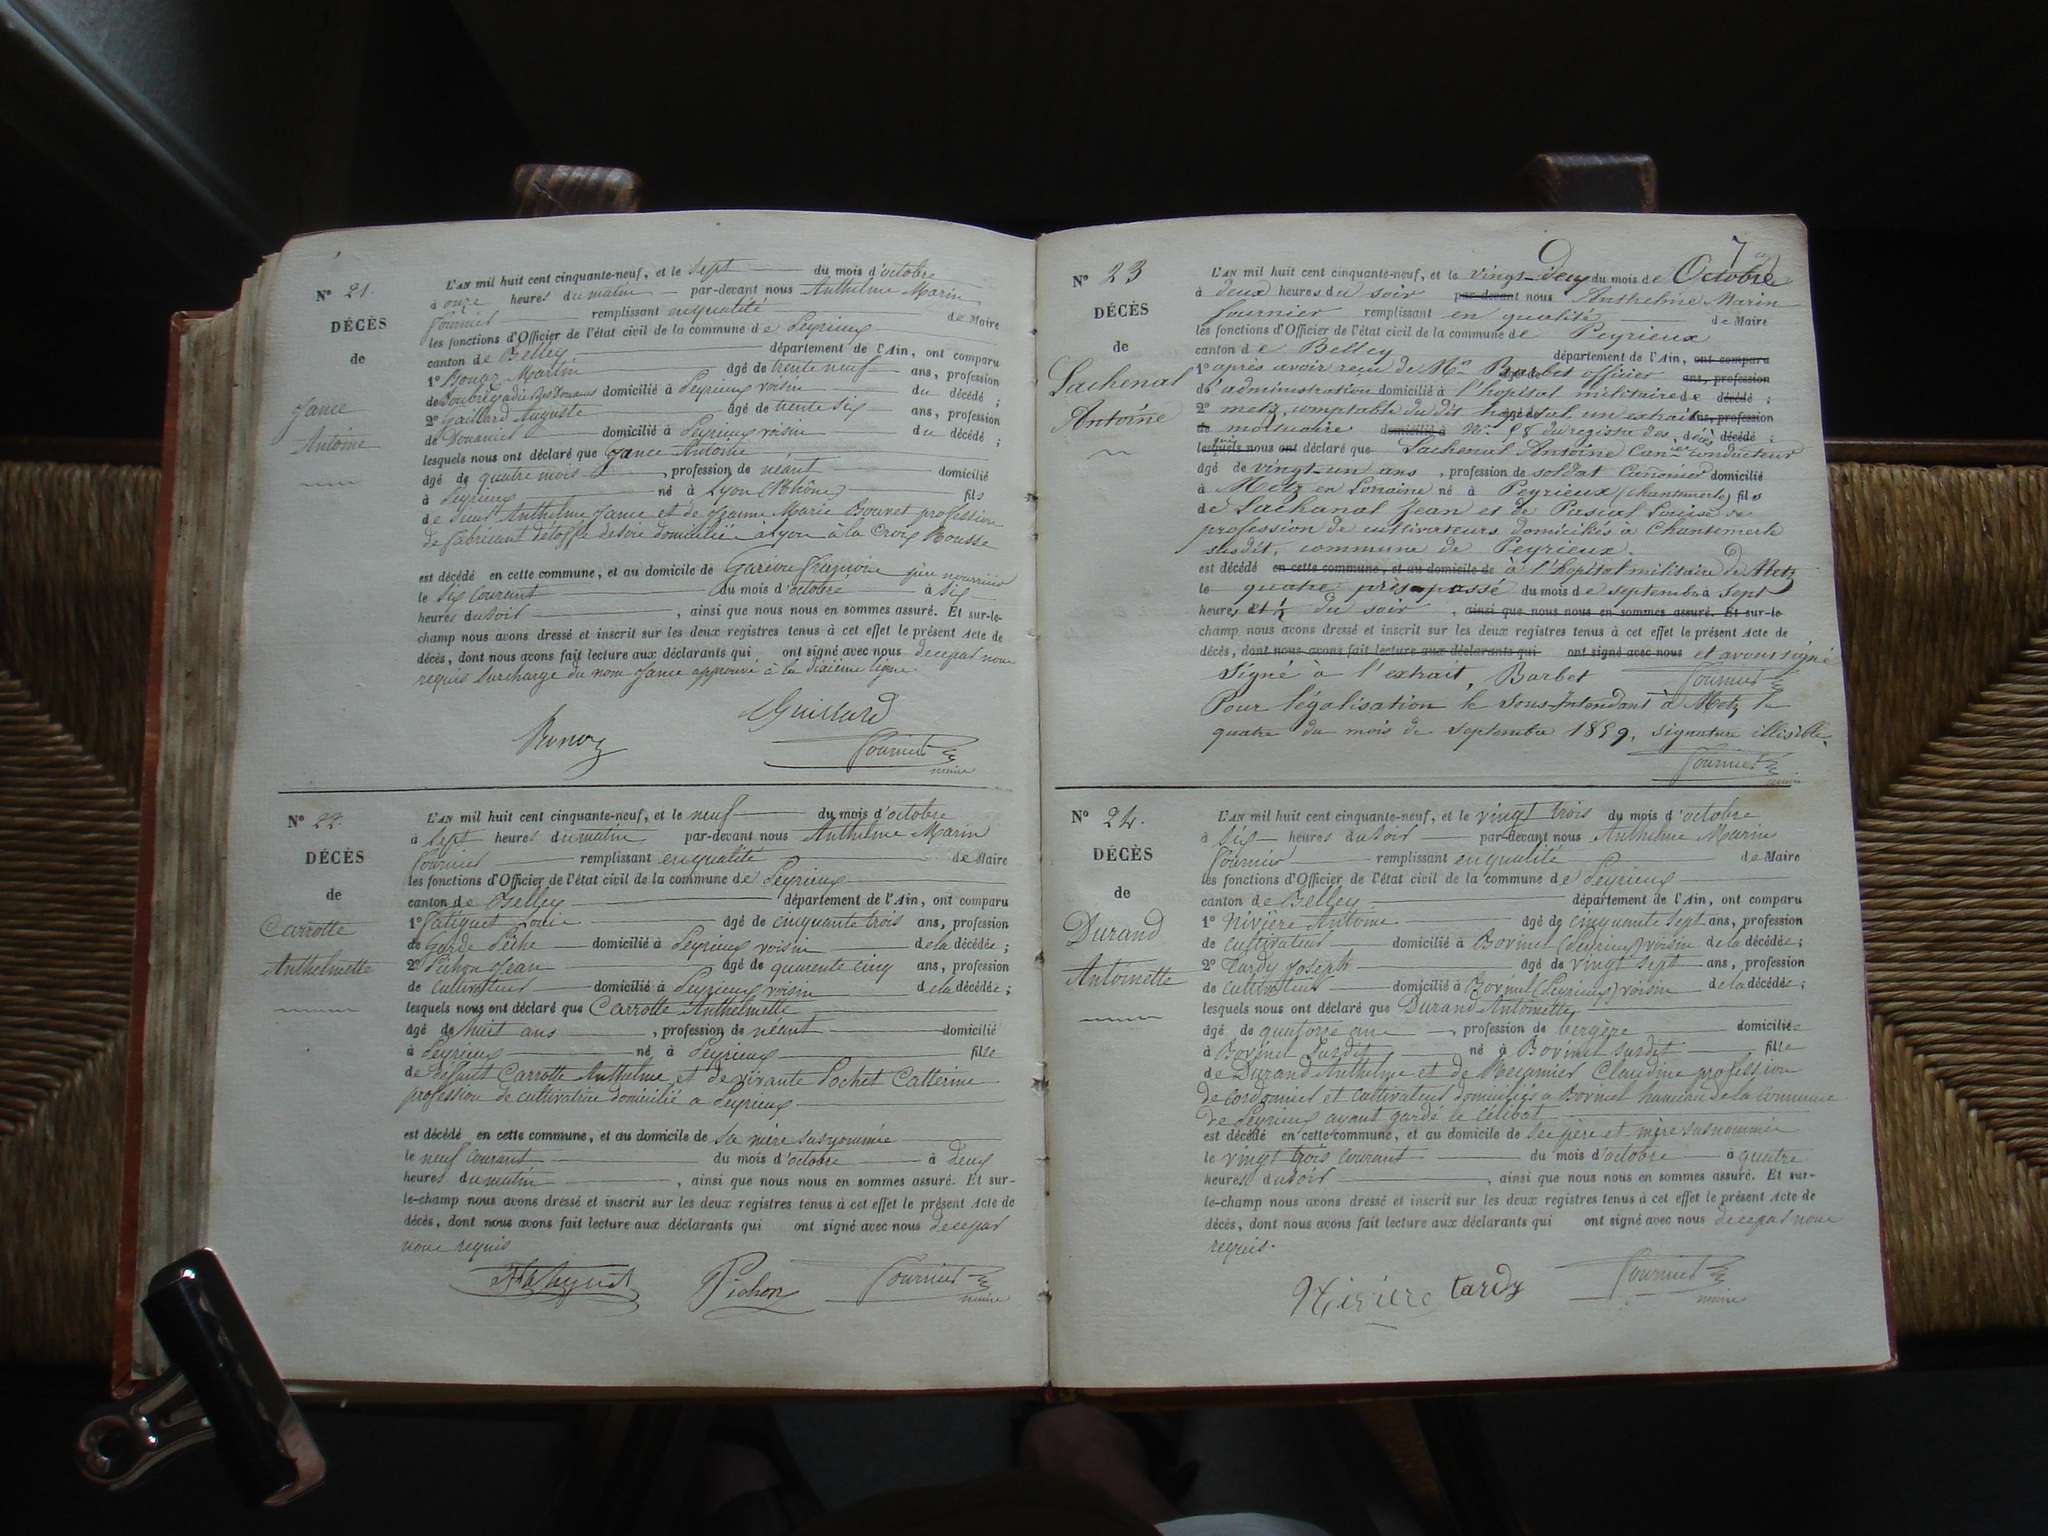 N° 21.
DÉCÈS
de
Jance
Antoine
L'AN mil huit cent cinquante-neuf, et le sept du mois d'octobre
à onze heures du matin par-devant nous Anthelme Marin
Fournier remplissant en qualité de Maire
les fonctions d'Officier de l'état civil de la commune de Peyrieux
canton de Belley département de l'Ain, ont comparu
1° Martin âgé de trente neuf ans, profession
de des Douanes domicilié à Peyrieux voisin du décédé ;
2° Gaillard Auguste âgé de trente six ans, profession
de Douanier domicilié à Peyrieux voisin du décédé ;
lesquels nous ont déclaré que Jance Antoine
âgé de quatre mois , profession de néant domicilié
à Peyrieux né à Lyon (Rhône) fils
de Anthelme Jance et de Jeanne Marie Bouvet profession
de fabricant d'étoffe de soie domiciliée à Lyon à la Croix Rousse
est décédé en cette commune, et au domicile de François père nourricier
le six courant du mois d'octobre à six
heures du soir , ainsi que nous nous en sommes assuré. Et sur-le-
champ nous avons dressé et inscrit sur les deux registres tenus à cet effet le présent Acte de
décès, dont nous avons fait lecture aux déclarants qui ont signé avec nous de ce par nous
requis surcharge du nom Jance approuvé à la dixième ligne
Fournier
maire
N° 22.
DÉCÈS
de
Carrotte
Anthelmette
L'AN mil huit cent cinquante-neuf, et le neuf du mois d'octobre
à sept heures du matin par-devant nous Anthelme Marin
Fournier remplissant en qualité de Maire
les fonctions d'Officier de l'état civil de la commune de Peyrieux
canton de Belley département de l'Ain, ont comparu
1° âgé de cinquante trois ans, profession
de Garde Pêche domicilié à Peyrieux voisin de la décédée ;
2° Pichon Jean âgé de quarente cinq ans, profession
de cultivateur domicilié à Peyrieux voisin de la décédée ;
lesquels nous ont déclaré que Carrotte Anthelmette
âgé de huit ans , profession de néant domicilié
à Peyrieux né à Peyrieux fille
de défunt Carrotte Anthelme et de vivante Pochet Catterine
profession de cultivatrice domicilié a Peyrieux
est décédé en cette commune, et au domicile de sa mère susnommée
le neuf courant du mois d'octobre à deux
heures du matin , ainsi que nous nous en sommes assuré. Et sur-
le-champ nous avons dressé et inscrit sur les deux registres tenus à cet effet le présent Acte de
décès, dont nous avons fait lecture aux déclarants qui ont signé avec nous de ce par
nous requis
Pichon Fournier
maire
7
N° 23
DÉCÈS
de
Lachenal
Antoine
L'AN mil huit cent cinquante-neuf, et le vingt-deux du mois de Octobre
à deux heures du soir par-devant nous Anthelme Marin
Fournier remplissant en qualité de Maire
les fonctions d'Officier de l'état civil de la commune de Peyrieux
canton de Belley département de l'Ain, ont comparu
1° après avoir reçu de Mr Barbet officier âgé de ans, profession
d'administration domicilié à l'hopital militaire de décédé ;
2° metz, comptable du dit hopital un extrait âgé de ans, profession
de mortuaire domicilié à N° 58 du registre des décès décédé ;
lesquels nous ont déclaré que Lachenal Antoine Canier conducteur
âgé de vingt-un ans , profession de soldat Canonier domicilié
à Metz en Lorraine né à Peyrieux (Chantemerle) fils
de Lachanal Jean et de Pascal Louise de
profession de cultivateurs domiciliés à Chantemerle
susdit, commune de Peyrieux.
est décédé en cette commune, et au domicile de à l'hopital militaire de Metz
le quatre près-passé du mois de septembre à sept
heures et ½ du soir , ainsi que nous nous en sommes assuré. Et sur-le-
champ nous avons dressé et inscrit sur les deux registres tenus à cet effet le présent Acte de
décès, dont nous avons fait lecture aux déclarants qui ont signé avec nous et avons signé
Signé à l'extrait, Barbet Fournier
Pour légalisation le Sous-Intendant à Metz le
quatre du mois de septembre 1859, signature illisible.
Fournier
maire
N° 24.
DÉCÈS
de
Durand
Antoinette
L'AN mil huit cent cinquante-neuf, et le vingt trois du mois d'octobre
à six heures du soir par-devant nous Anthelme Marin
Fournier remplissant en qualité de Maire
les fonctions d'Officier de l'état civil de la commune de Peyrieux
canton de Belley département de l'Ain, ont comparu
1° Nivière Antoine âgé de cinquante sept ans, profession
de cultivateur domicilié à Bovinel (Peyrieux) voisin de la décédée ;
2° Tardy Joseph âgé de vingt sept ans, profession
de cultivateur domicilié à Bovinel (Peyrieux) voisin de la décédée ;
lesquels nous ont déclaré que Durand Antoinette
âgé de quatorze ans , profession de bergère domiciliée
à Bovinel susdit né à Bovinel susdit fille
de Durand Anthelme et de Claudine profession
de cordonnier et cultivateur domiciliés a Bovinel hameau de la commune
de Peyrieux ayant gardé le célibat
est décédé en cette commune, et au domicile de ses père et mère susnommés
le vingt trois courant du mois d'octobre à quatre
heures du soir , ainsi que nous nous en sommes assuré. Et sur-
le-champ nous avons dressé et inscrit sur les deux registres tenus à cet effet le présent Acte de
décès, dont nous avons fait lecture aux déclarants qui ont signé avec nous de ce par nous
requis.
Nivière tardy Fournier
maire